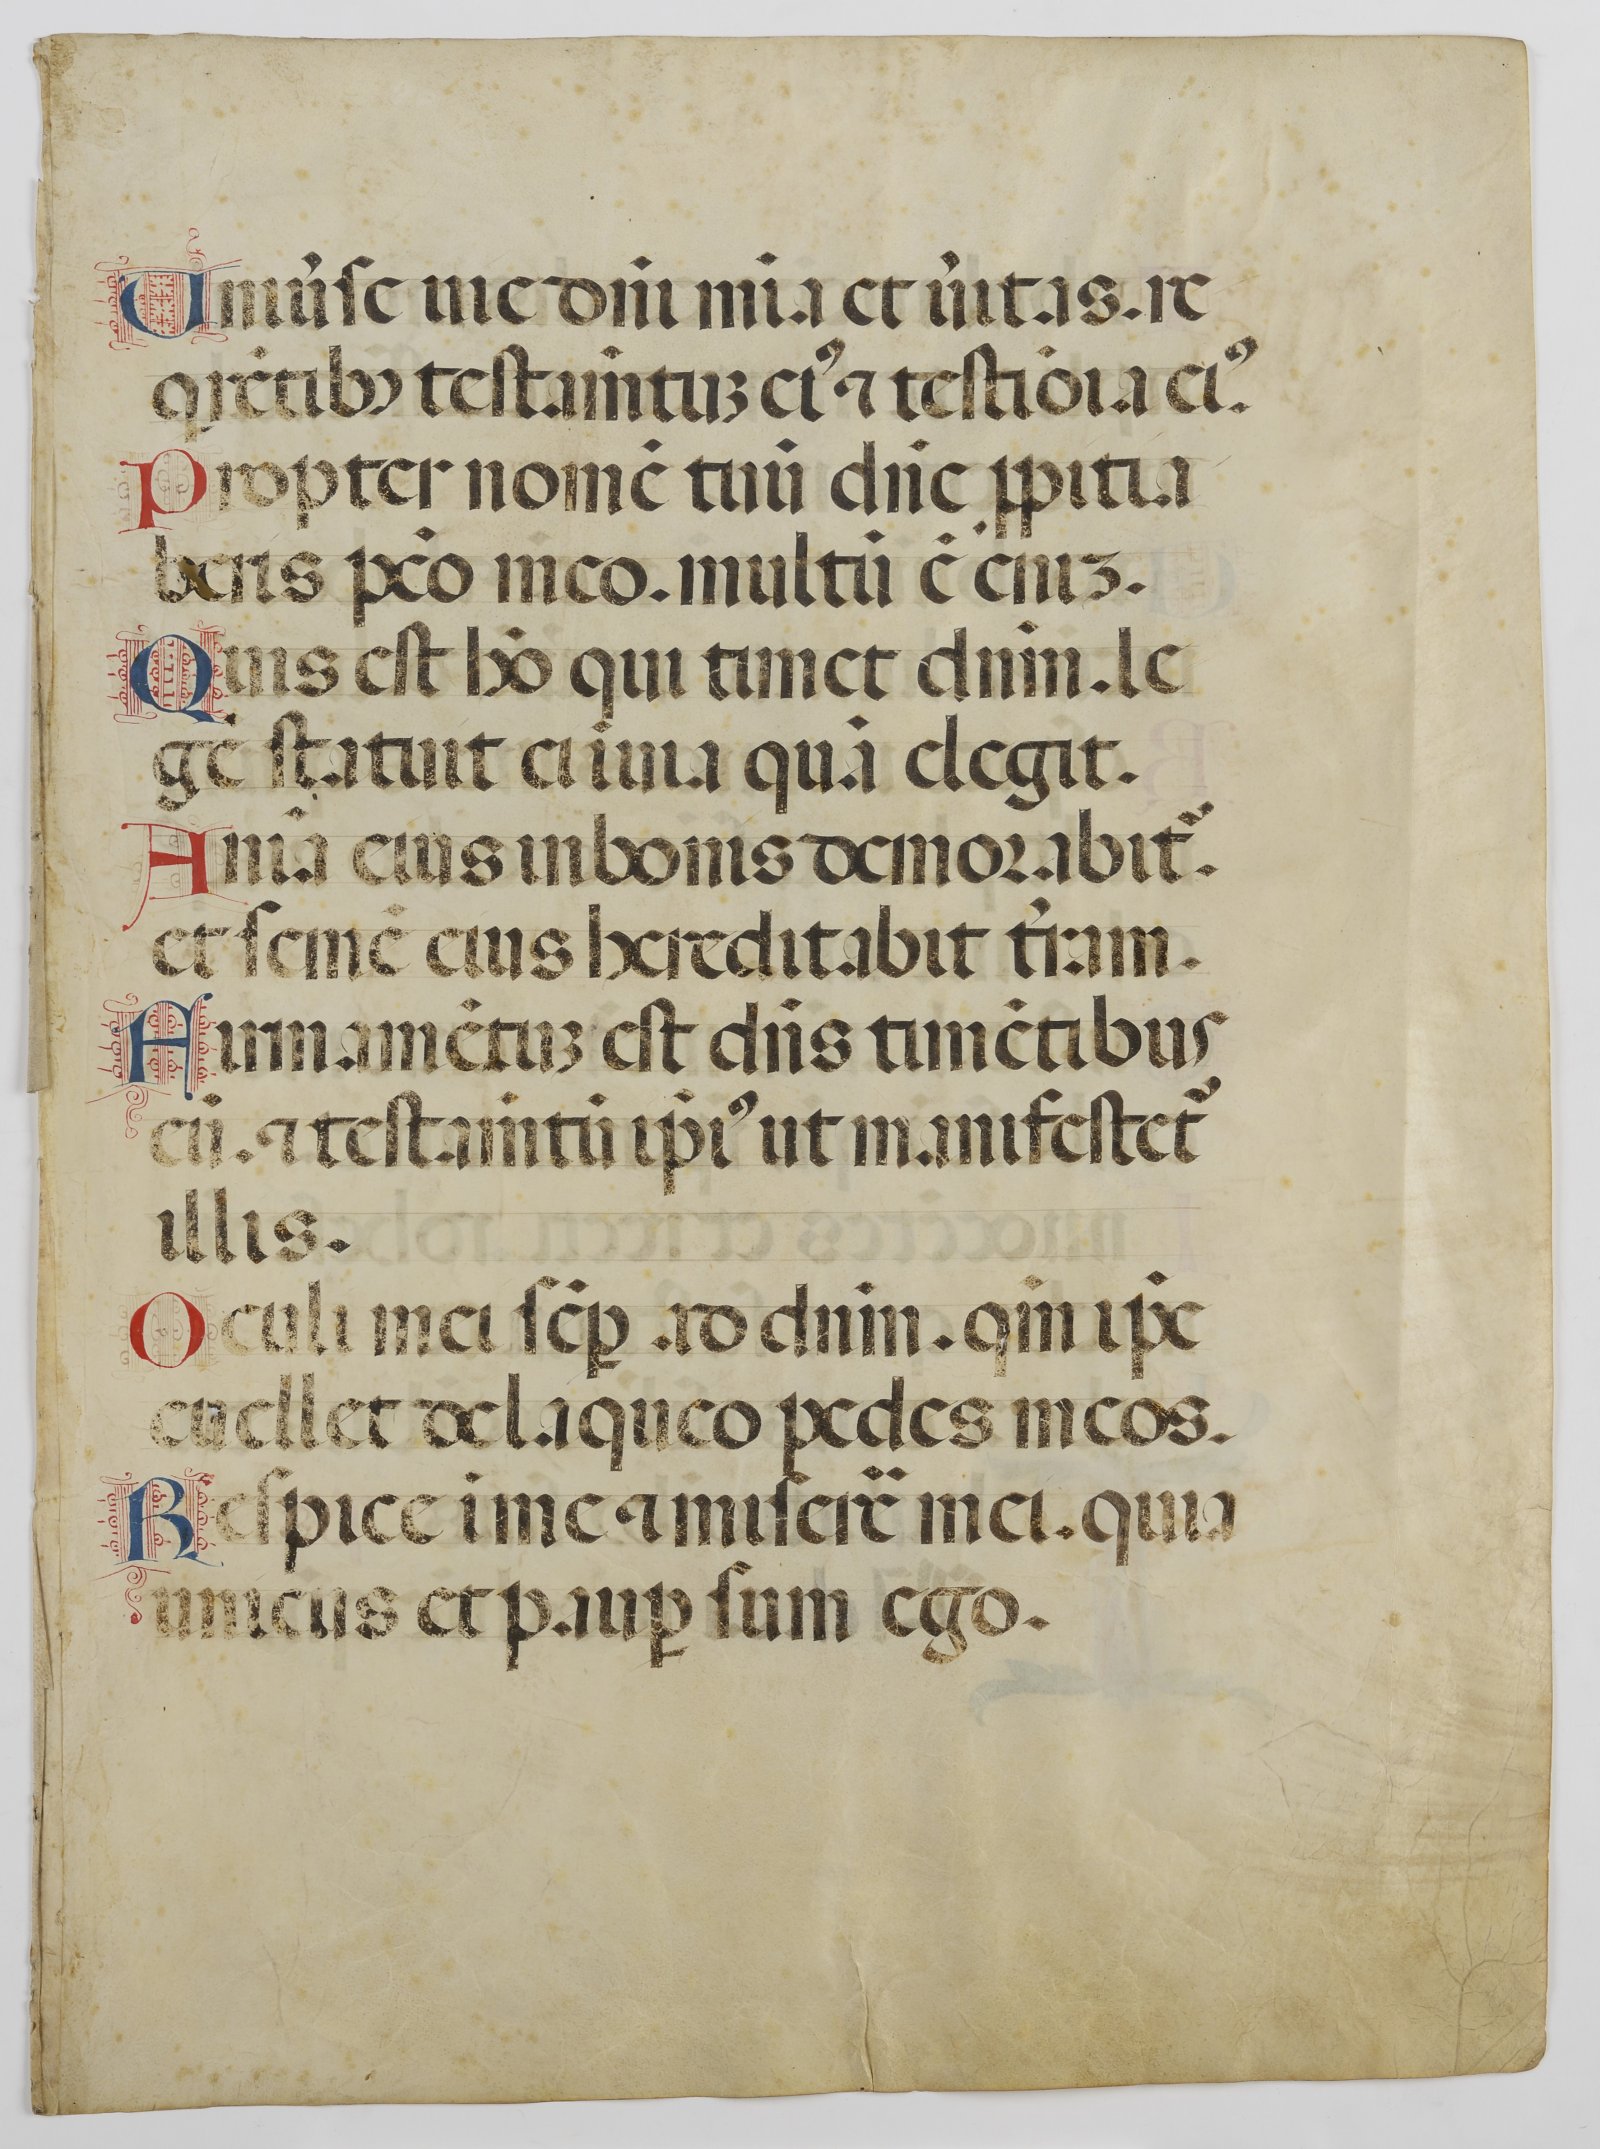 Univ̉se vie dñi mīa et v̉itas. re
qrētibꝫ testam̄tuꝫ eiꝰ ⁊ testīōīa eiꝰ.
Propter nomē tuū dñe ꝓpitia
beris pc̄o meo. multū ē eniꝫ.
Quis est hō qui timet dnm̄. le
gē statuit ei i uia quā elegit.
Anīa eius in bonis demorabit᷑.
et semē eius hereditabit t̉ram.
Firmamētuꝫ est dñs timētibus
eū. ⁊ testam̄tū ip̄iꝰ ut manifestet᷑
illis.
Oculi mei sēꝑ ad dnm̄. qm̄ ip̄e
euellet de laqueo pedes meos.
Respice ī me ⁊ miserē mei. quia
unicus et pauꝑ sum ego.